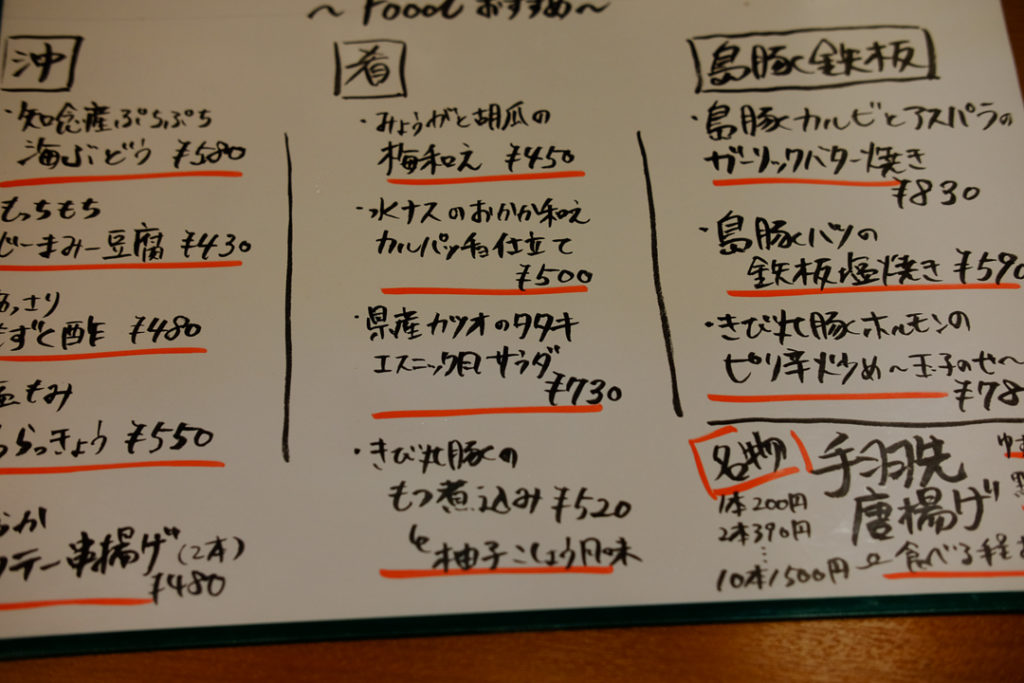 ～Foodおすすめ～
沖
・知念産ぷちぷち
海ぶどう ¥580
もっちもち
じーまみー豆腐 ¥430
あっさり
もずく酢 ¥480
塩もみ
らっきょう ¥550
テー串揚げ(2本)
¥480
肴
・みょうがと胡瓜の
梅和え ¥450
・水ナスのおかか和え
カルパッチョ仕立て
¥500
・県産カツオのタタキ
エスニック風サラダ
¥730
・きび火豚の
もつ煮込み ¥520
柚子こしょう風味
島豚鉄板
・島豚カルビとアスパラの
ガーリックバター焼き
¥830
・島豚ハツの
鉄板塩焼き ¥590
・きび火豚ホルモンの
ピリ辛炒め～玉子のせ～
¥78
名物
手羽先
唐揚げ
1本200円
2本390円
⋮
10本1500円
食べる程